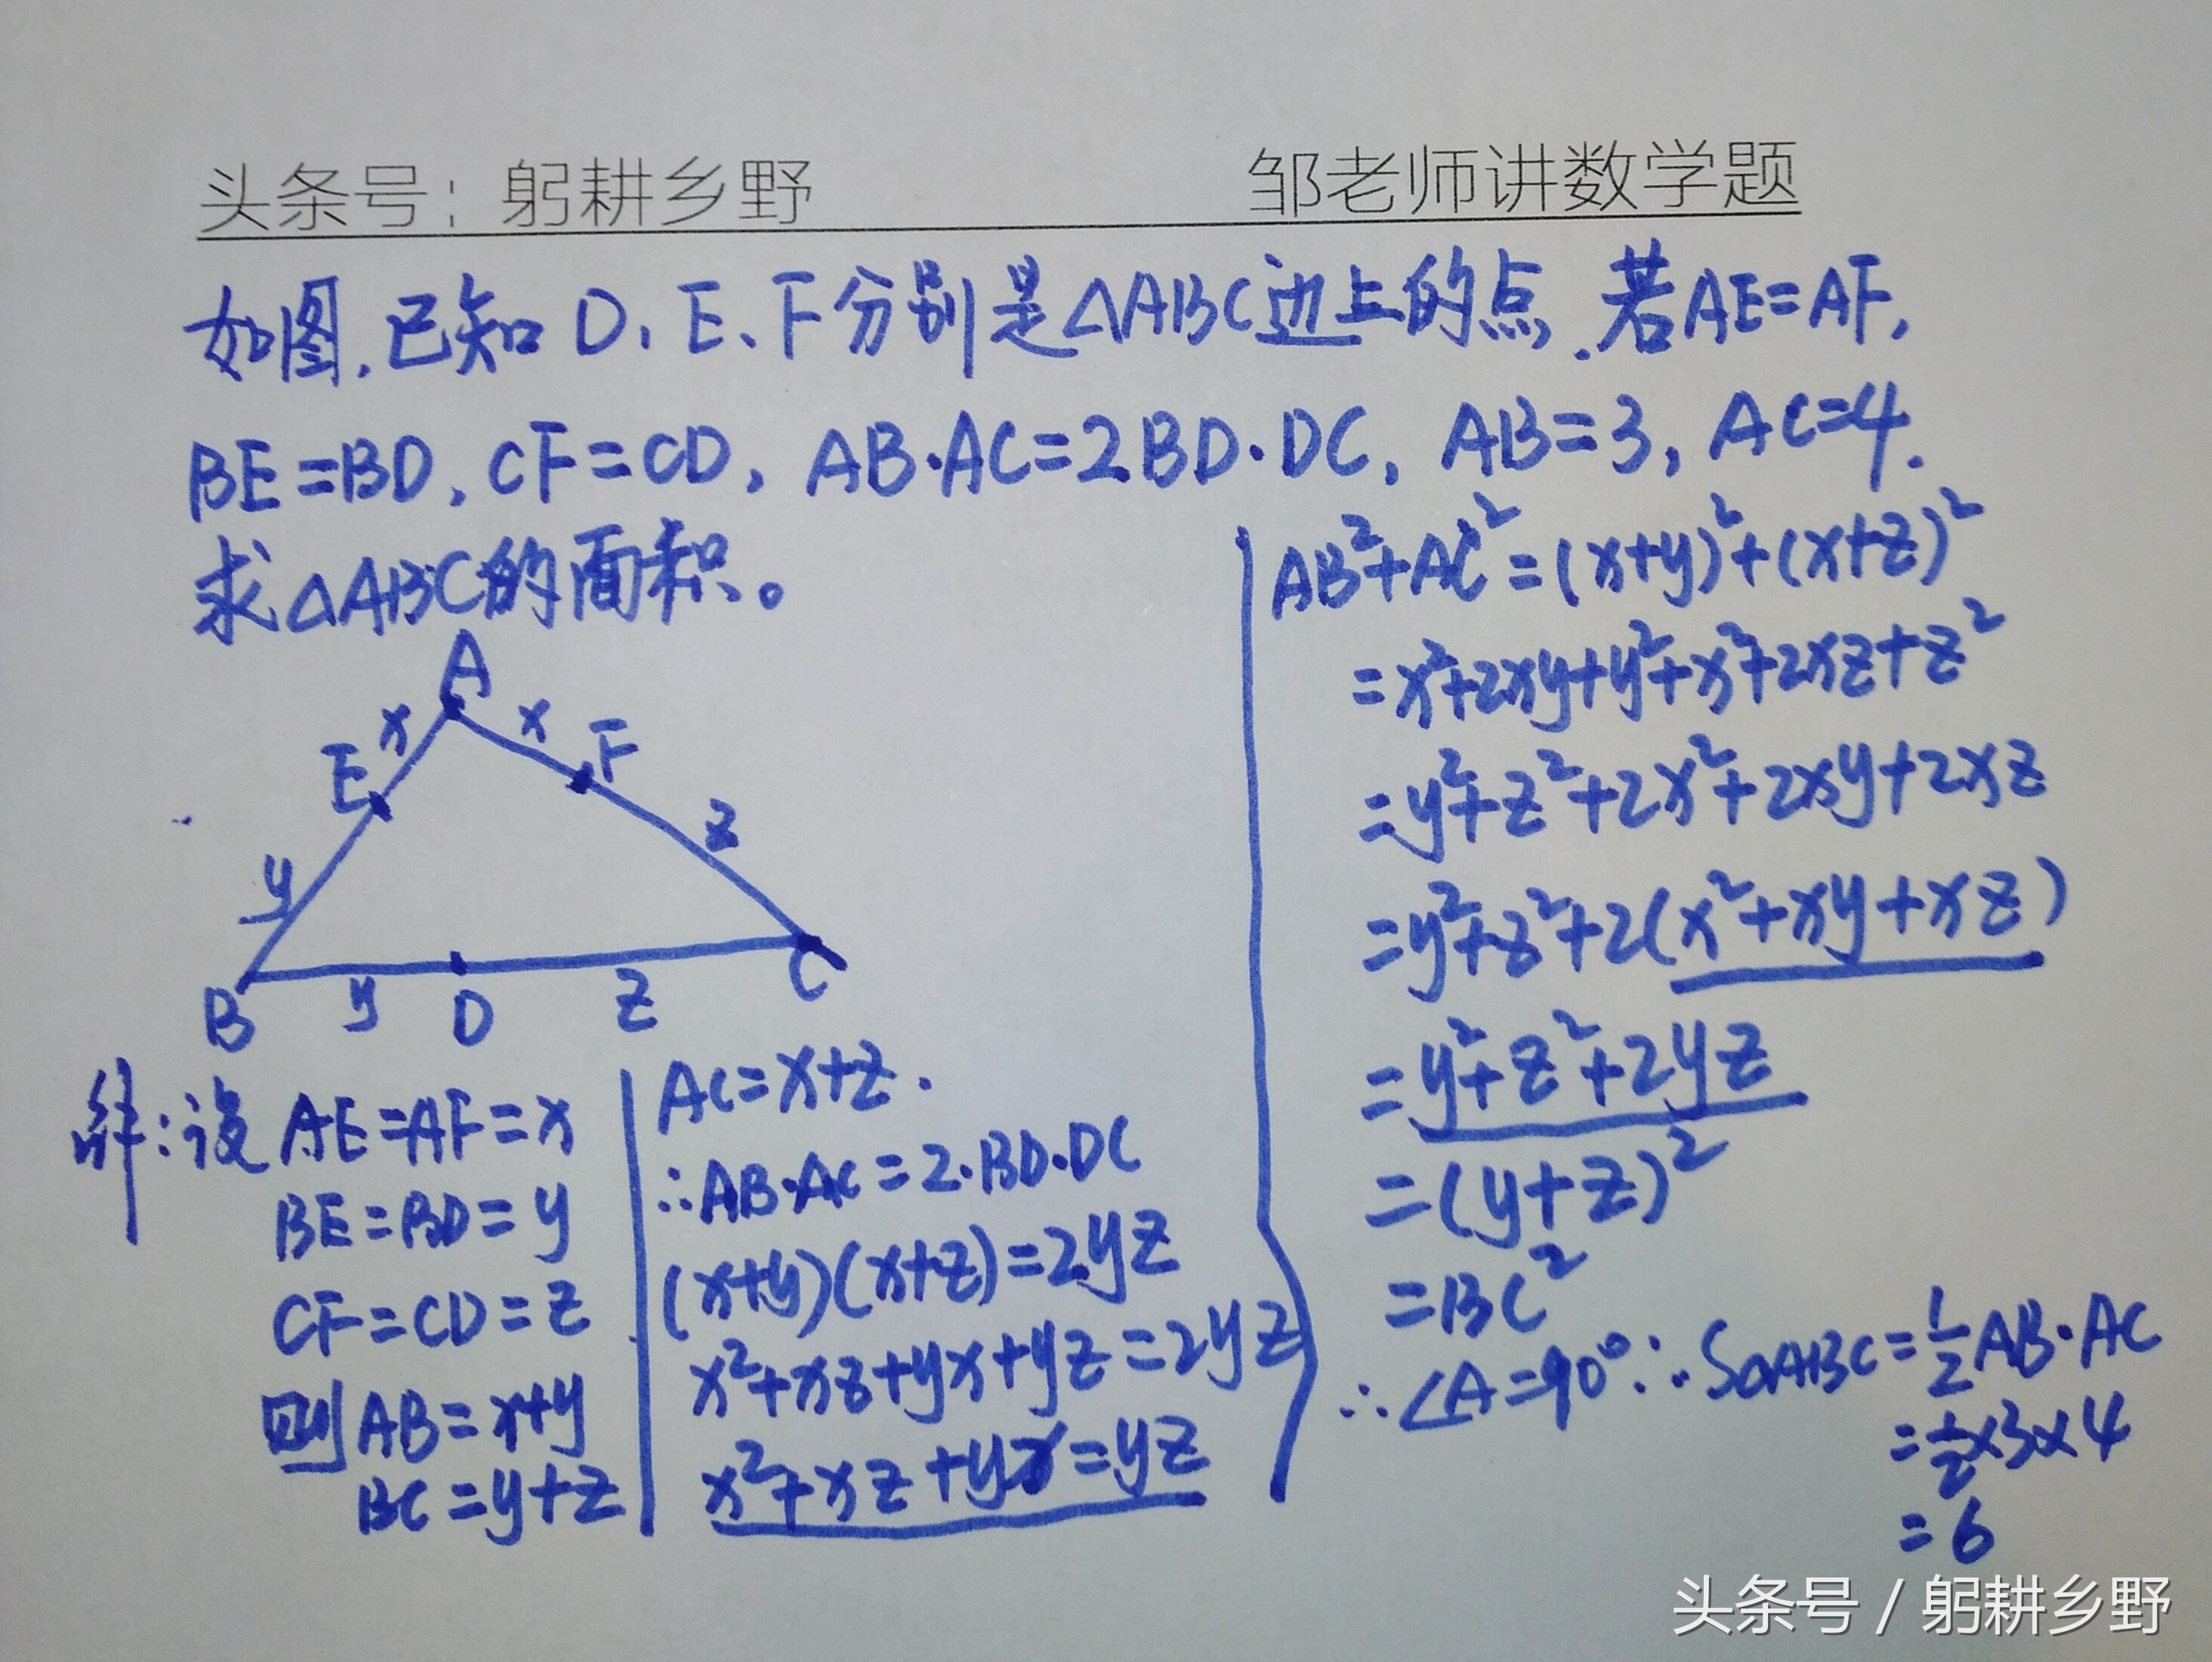 头条号：躬耕乡野 邹老师讲数学题
如图,已知D、E、F分别是△ABC边上的点.若AE=AF,
BE=BD,CF=CD,AB·AC=2BD·DC,AB=3,AC=4.
求△ABC的面积。
A
x
x
E
F
y
z
B
y
D
z
C
解:设AE=AF=x
BE=BD=y
CF=CD=z
则AB=x+y
BC=y+z
AC=x+z.
∴AB·AC=2·BD·DC
(x+y)(x+z)=2yz
x²+xz+yx+yz=2yz
x²+xz+yx=yz
AB²+AC²=(x+y)²+(x+z)²
=x²+2xy+y²+x²+2xz+z²
=y²+z²+2x²+2xy+2xz
=y²+z²+2(x²+xy+xz)
=y²+z²+2yz
=(y+z)²
=BC²
∴∠A=90°∴S△ABC=½AB·AC
=½×3×4
=6
头条号 / 躬耕乡野